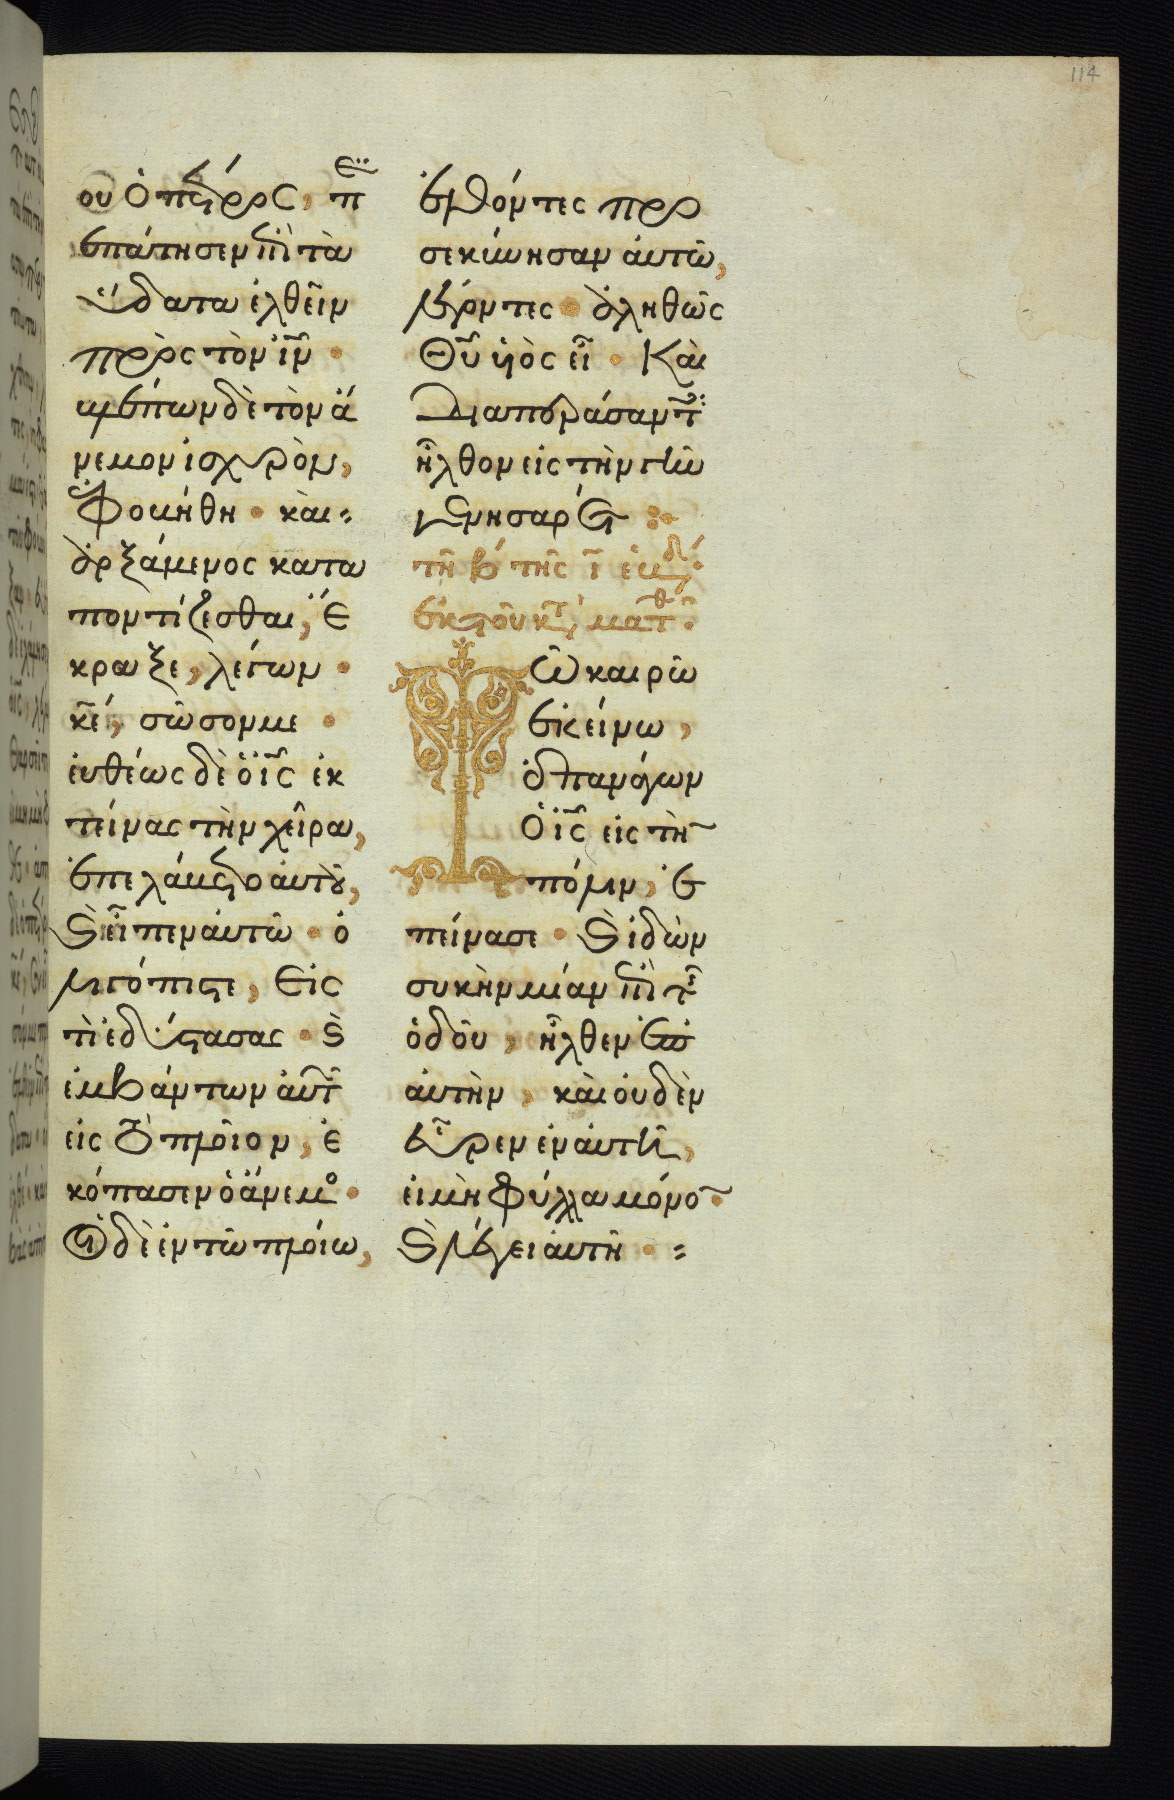 114
ου ὁ πέτρος, πε
ριεπάτησεν ἐπὶ τὰ
ὕδατα ἐλθεῖν
πρὸς τὸν ἰν̅ ·
βλέπων δὲ τὸν ἄ
νεμον ἰσχυρὸν,
ἐφοβήθη · καὶ
ἀρξάμενος κατα
ποντίζεσθαι, ἔ
κραξε, λέγων ·
κε̅, σῶσον με ·
εὐθέως δὲ ὁ ις̅ ἐκ
τείνας τὴν χεῖρα,
ἐπελάβετο αὐτοῦ,
καὶ εἶπεν αὐτῶ · ὀ
λιγόπιστε, εἰς
τί ἐδίστασας · καὶ
ἐμβάντων αὐτῶν
εἰς τὸ πλοῖον, ἐ
κόπασεν ὁ ἄνεμος ·
οἱ δὲ ἐν τῶ πλοίω,
ἐλθόντες προ
σεκύνησαν αὐτῶ,
λέγοντες · ἀληθῶς
θυ̅ υἱὸς εἶ · Καὶ
διαπεράσαντες
ἦλθον εἰς τὴν γῆν
γεννησαρέτ
τῆ β΄ τῆς ι΄ ἑβδ
ἐκ τοῦ κατὰ ματθ
Τῶ καιρῶ
ἐκείνω,
ἐπανάγων
ὁ ις̅ εἰς τὴν
πόλιν, ἐ
πείνασε · καὶ ἰδὼν
συκὴν μίαν ἐπὶ τῆς
ὁδοῦ, ἦλθεν ἐπ
αὐτὴν, καὶ οὐδὲν
εὗρεν ἐν αὐτῆ,
εἰ μὴ φύλλα μόνον ·
καὶ λέγει αὐτῆ ·